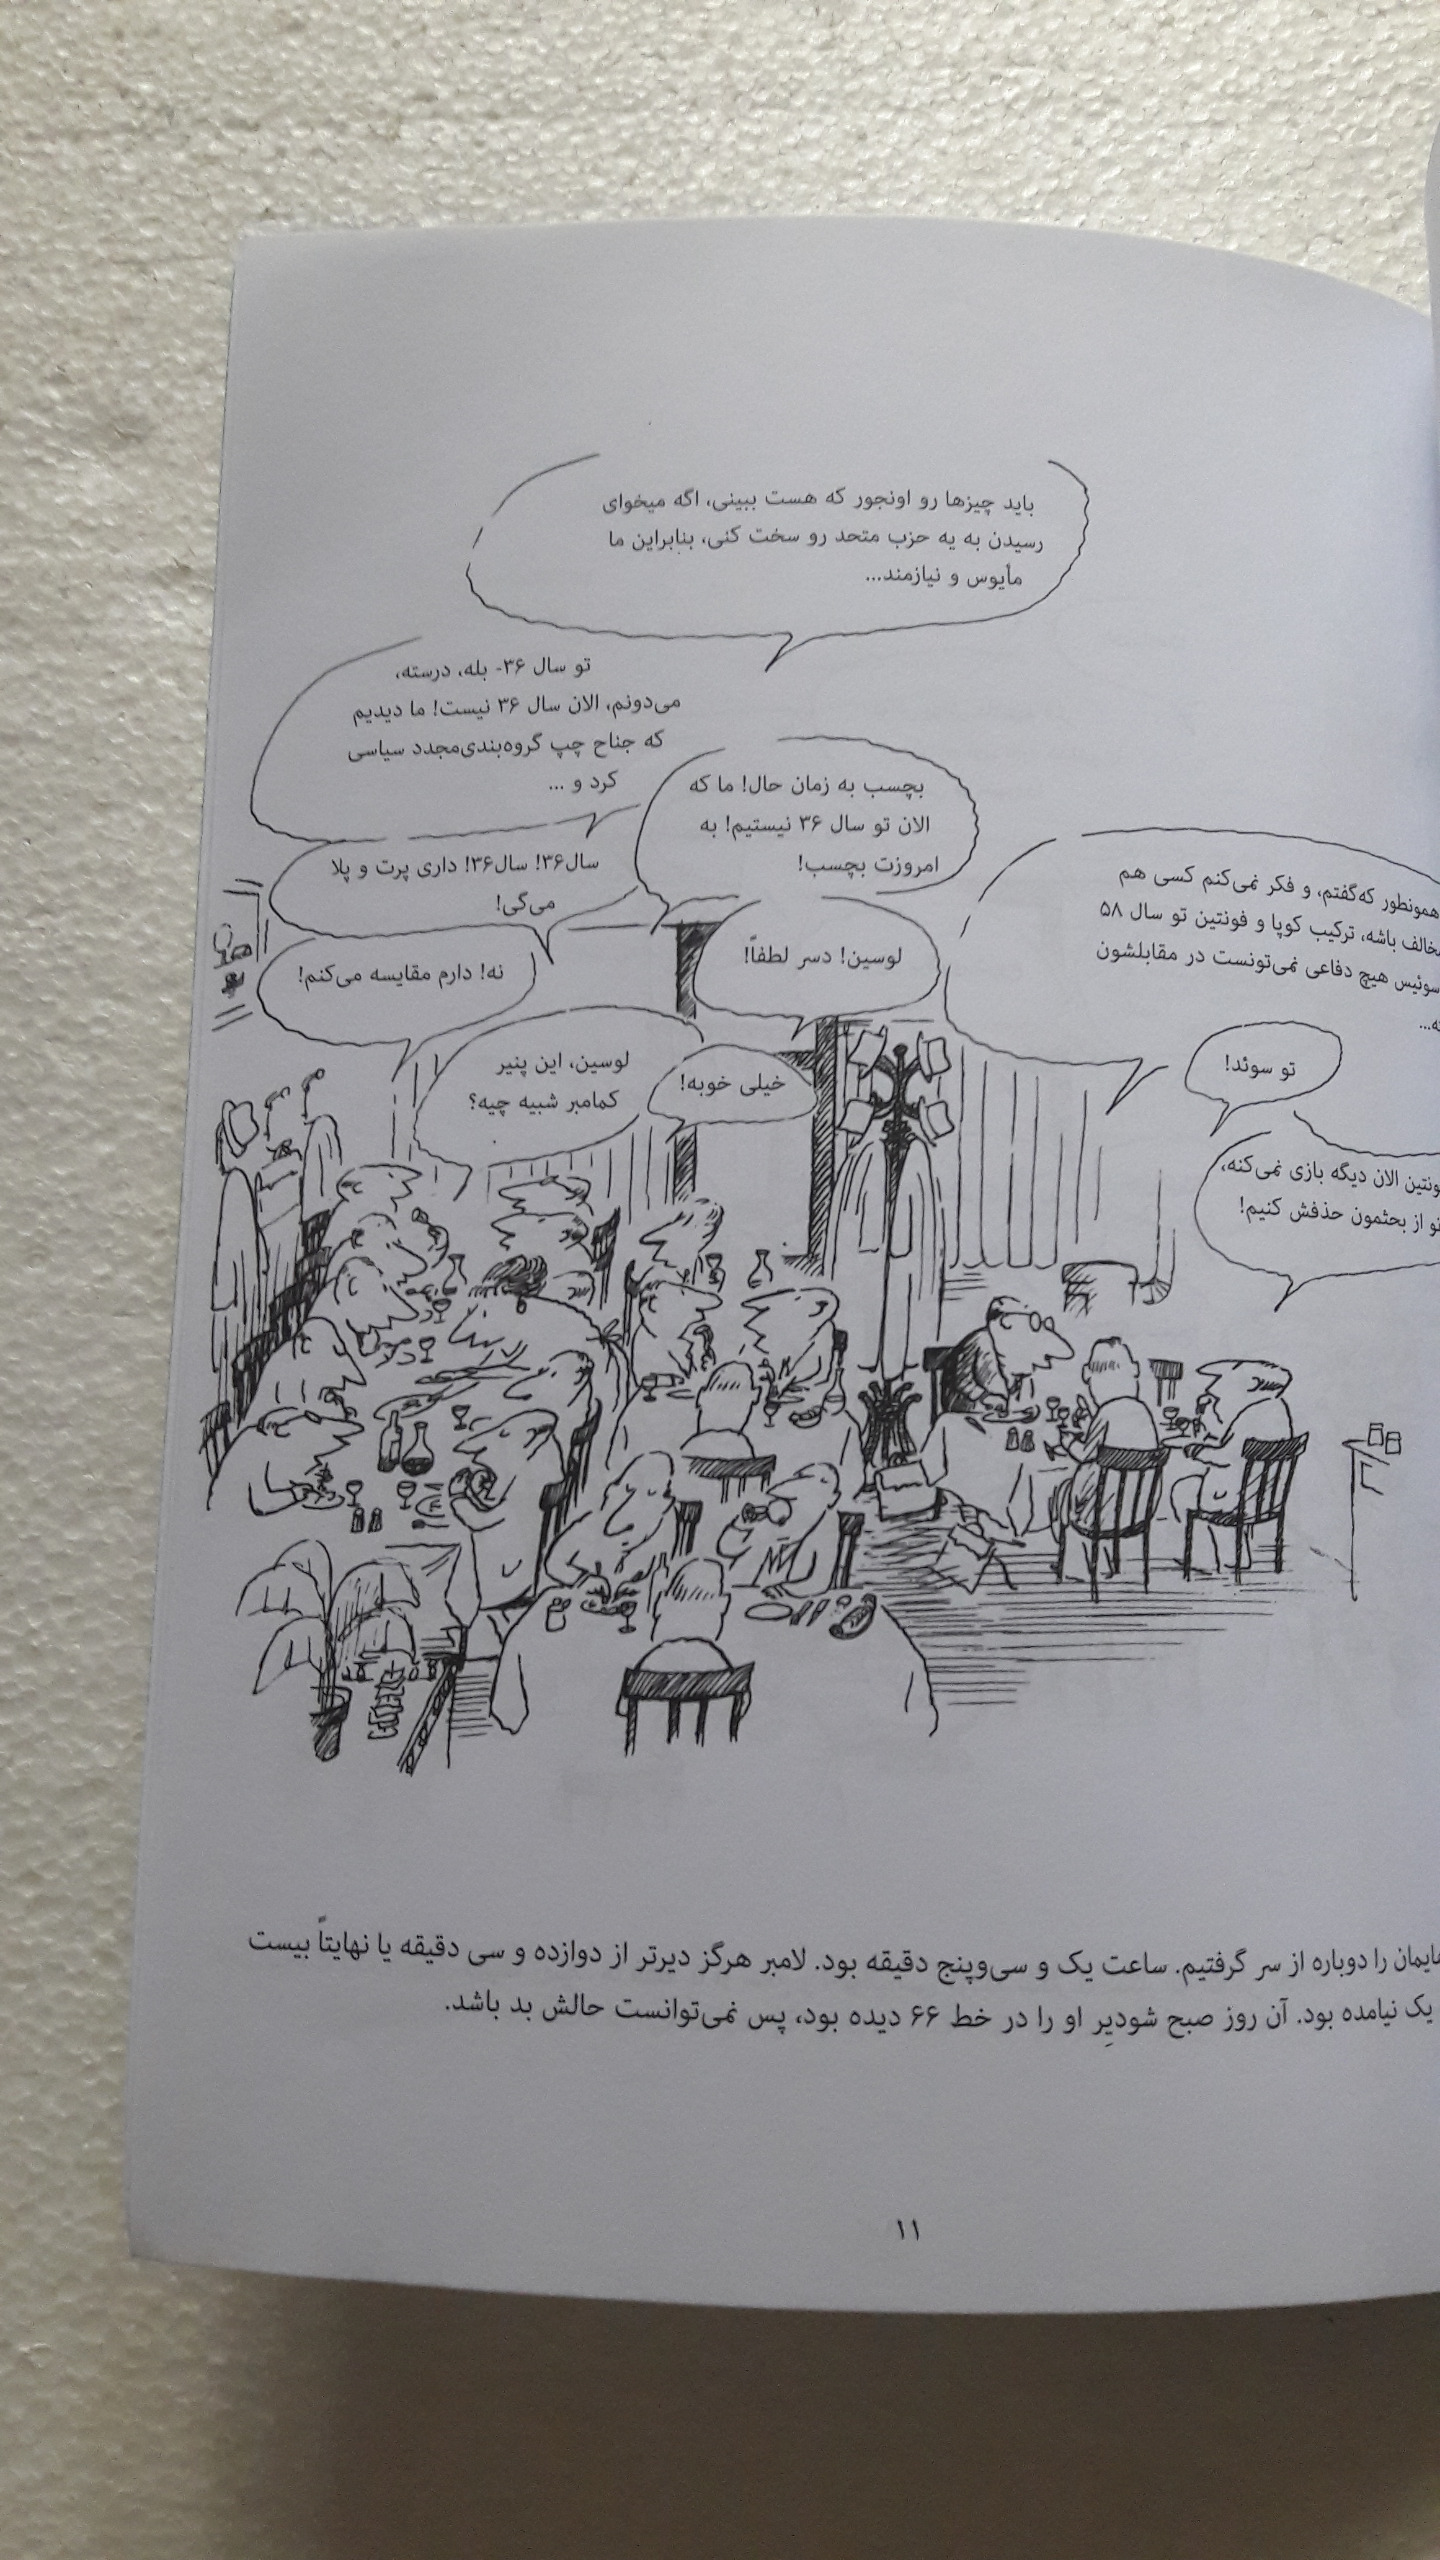 باید چیزها رو اونجور که هست ببینی، اگه میخوای
رسیدن به یه حزب متحد رو سخت کنی، بنابراین ما
مأیوس و نیازمند...
تو سال ۳۶- بله، درسته،
می‌دونم، الان سال ۳۶ نیست! ما دیدیم
که جناح چپ گروه‌بندی‌مجدد سیاسی
کرد و ...
بچسب به زمان حال! ما که
الان تو سال ۳۶ نیستیم! به
امروزت بچسب!
سال۳۶! سال۳۶! داری پرت و پلا
می‌گی!
نه! دارم مقایسه می‌کنم!
لوسین! دسر لطفاً!
همونطور که‌گفتم، و فکر نمی‌کنم کسی هم
مخالف باشه، ترکیب کوپا و فونتین تو سال ۵۸
سوئیس هیچ دفاعی نمی‌تونست در مقابلشون
تو سوئد!
لوسین، این پنیر
کمامبر شبیه چیه؟
خیلی خوبه!
الان دیگه بازی نمی‌کنه،
از بحثمون حذفش کنیم!
را دوباره از سر گرفتیم. ساعت یک و سی‌وپنج دقیقه بود. لامبر هرگز دیرتر از دوازده و سی دقیقه یا نهایتاً بیست
یک نیامده بود. آن روز صبح شودیِر او را در خط ۶۶ دیده بود، پس نمی‌توانست حالش بد باشد.
۱۱